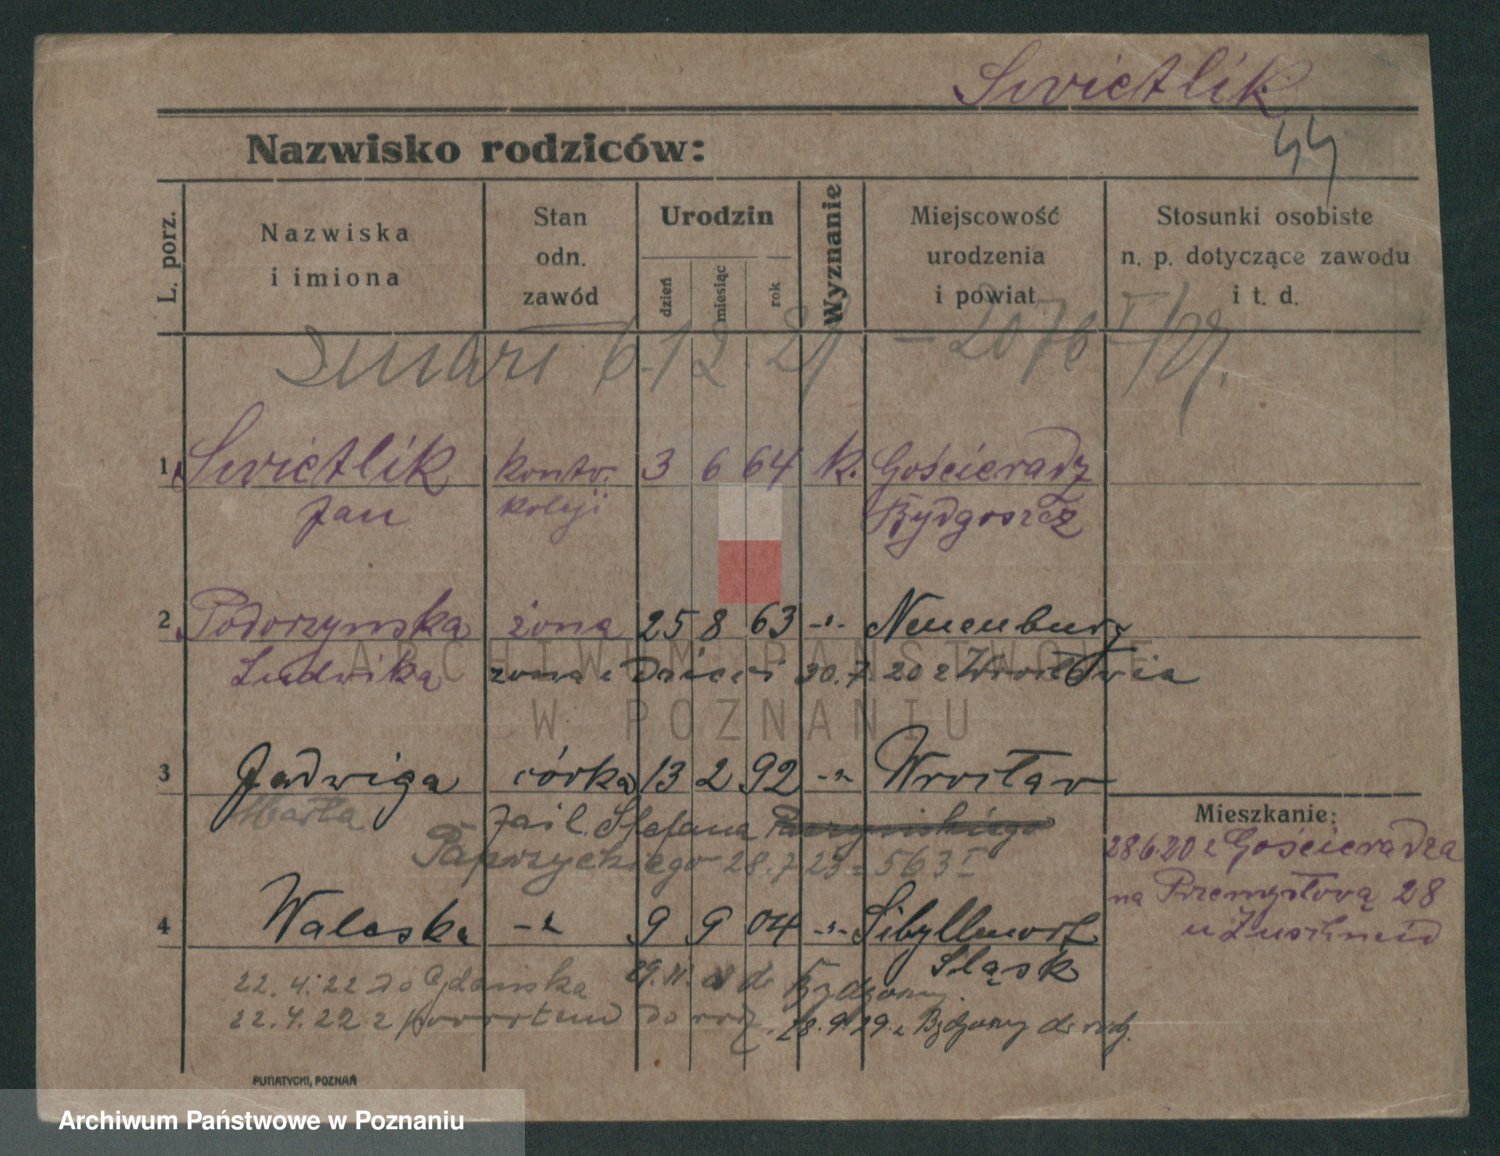 Swietlik
44
Nazwisko rodziców:
L. porz.
Nazwiska
i imiona
Stan
odn.
zawód
Urodzin
dzień
miesiąc
rok
Wyznanie
Miejscowość
urodzenia
i powiat
Stosunki osobiste
n. p. dotyczące zawodu
i t. d.
zmarł 6.12.27 - 2076 I/27.
1 Swietlik kontr. 3 6 64 k. Gościeradz
Jan koleji Bydgoszcz
2 Podorzynska żona 25 8 63 -"- Neuenburg
Ludwika żona i dzieci 30.7.20 z Wrocławia
3 Jadwiga córka 13 2 92 -"- Wrocław
Marta zaśl. Stefana
Paprzyckiego 28.7.23 = 563 I
Mieszkanie:
28.6.20 z Gościeradza
na Przemysłową 28
u
4 Waleska -"- 9 9 04 -"- Sibyllenort
Śląsk
22.4.22 do Gdańska 29.11. do Bydgoszczy.
22.4.22 z powrotem do rodz. 28.9.29 z Bydgoszczy do rodz.
PUTIATYCKI, POZNAŃ
ARCHIWUM PAŃSTWOWE
W POZNANIU
Archiwum Państwowe w Poznaniu